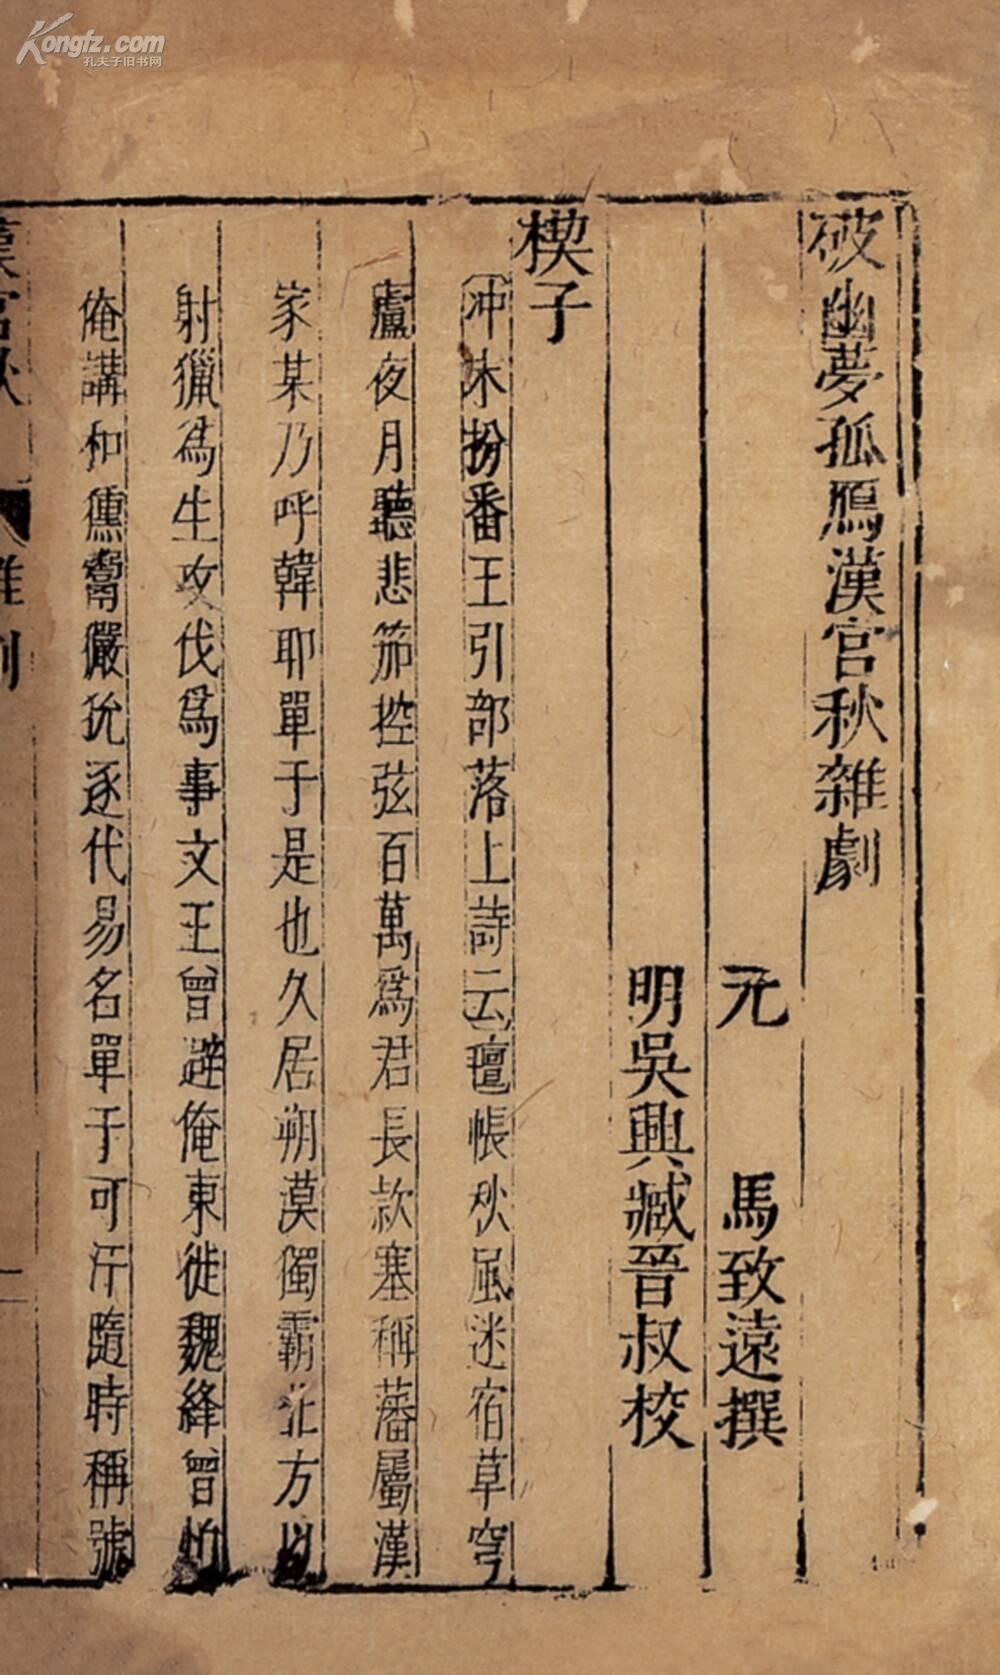 破幽夢孤鴈漢宮秋雜劇
元 馬致遠撰
明吳興臧晉叔校
楔子
冲末扮番王引部落上詩云氊帳秋風迷宿草穹
廬夜月聽悲笳控弦百萬爲君長款塞稱藩屬漢
家某乃呼韓耶單于是也久居朔漠獨霸北方以
射獵爲生攻伐爲事文王曾避俺東徙魏絳曾怕
俺講和獯鬻玁狁逐代易名單于可汗隨時稱號
漢宮秋 雜劇 一
Kongfz.com
孔夫子旧书网